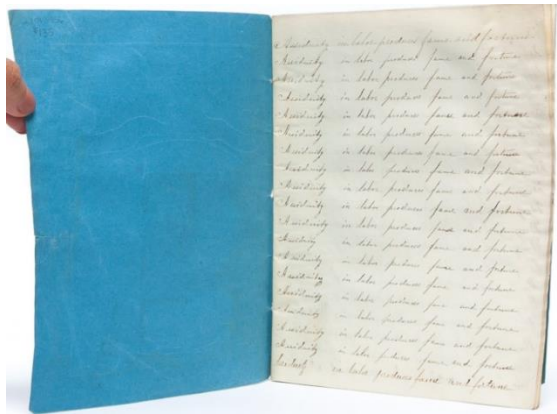 Assiduity in labor produces fame and fortune
Assiduity in labor produces fame and fortune
Assiduity in labor produces fame and fortune
Assiduity in labor produces fame and fortune
Assiduity in labor produces fame and fortune
Assiduity in labor produces fame and fortune
Assiduity in labor produces fame and fortune
Assiduity in labor produces fame and fortune
Assiduity in labor produces fame and fortune
Assiduity in labor produces fame and fortune
Assiduity in labor produces fame and fortune
Assiduity in labor produces fame and fortune
Assiduity in labor produces fame and fortune
Assiduity in labor produces fame and fortune
Assiduity in labor produces fame and fortune
Assiduity in labor produces fame and fortune
Assiduity in labor produces fame and fortune
Assiduity in labor produces fame and fortune
in labor produces fame and fortune